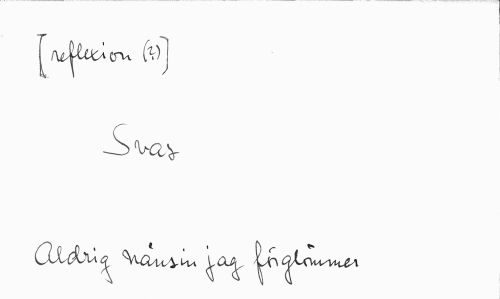 [reflexion (?)]
Svar
Aldrig nånsin jag förglömmer